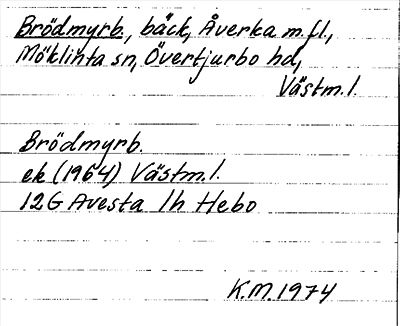 Brödmyrb., bäck, Åverka m.fl.,
Möklinta sn, Övertjurbo hd,
Västm.l.
Brödmyrb.
ek (1964) Västm.l.
12G Avesta 1h Hebo
K.M. 1974